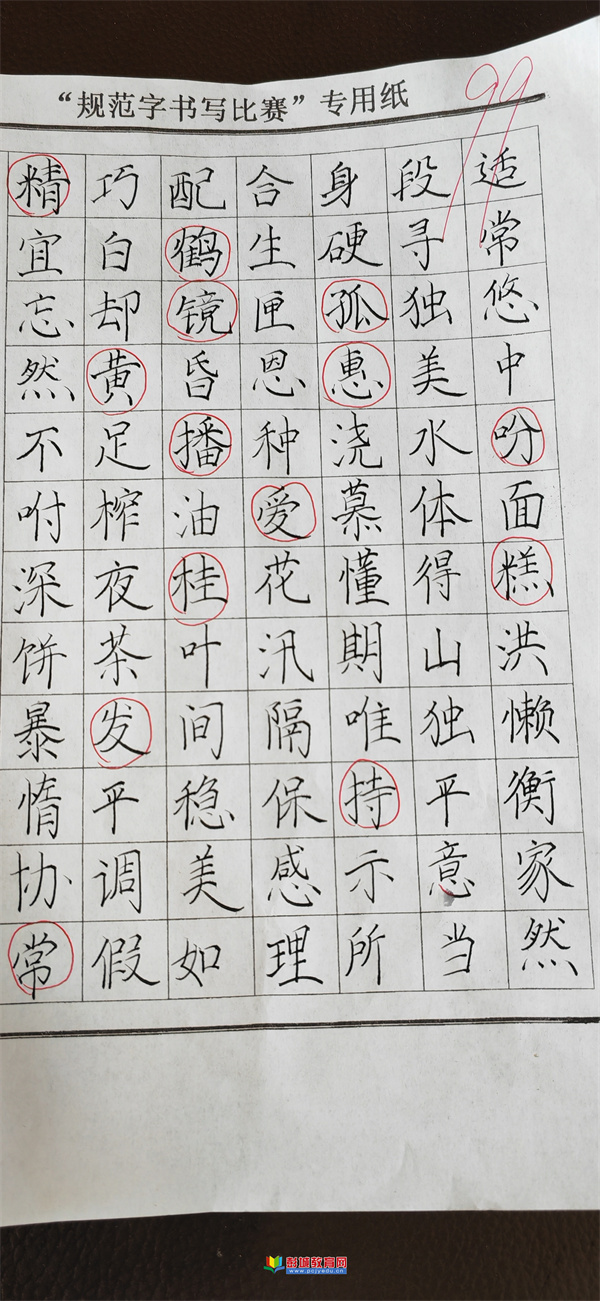 “规范字书写比赛”专用纸
99
精巧配合身段适
宜白鹤生硬寻常
忘却镜匣孤独悠
然黄昏恩惠美中
不足播种浇水吩
咐榨油爱慕体面
深夜桂花懂得糕
饼茶叶汛期山洪
暴发间隔唯独懒
惰平稳保持平衡
协调美感示意家
常假如理所当然
彭城教育网
www.pcjyedu.cn